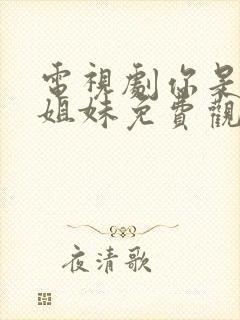 電視劇你是
姐妹免費觀
夜清歌